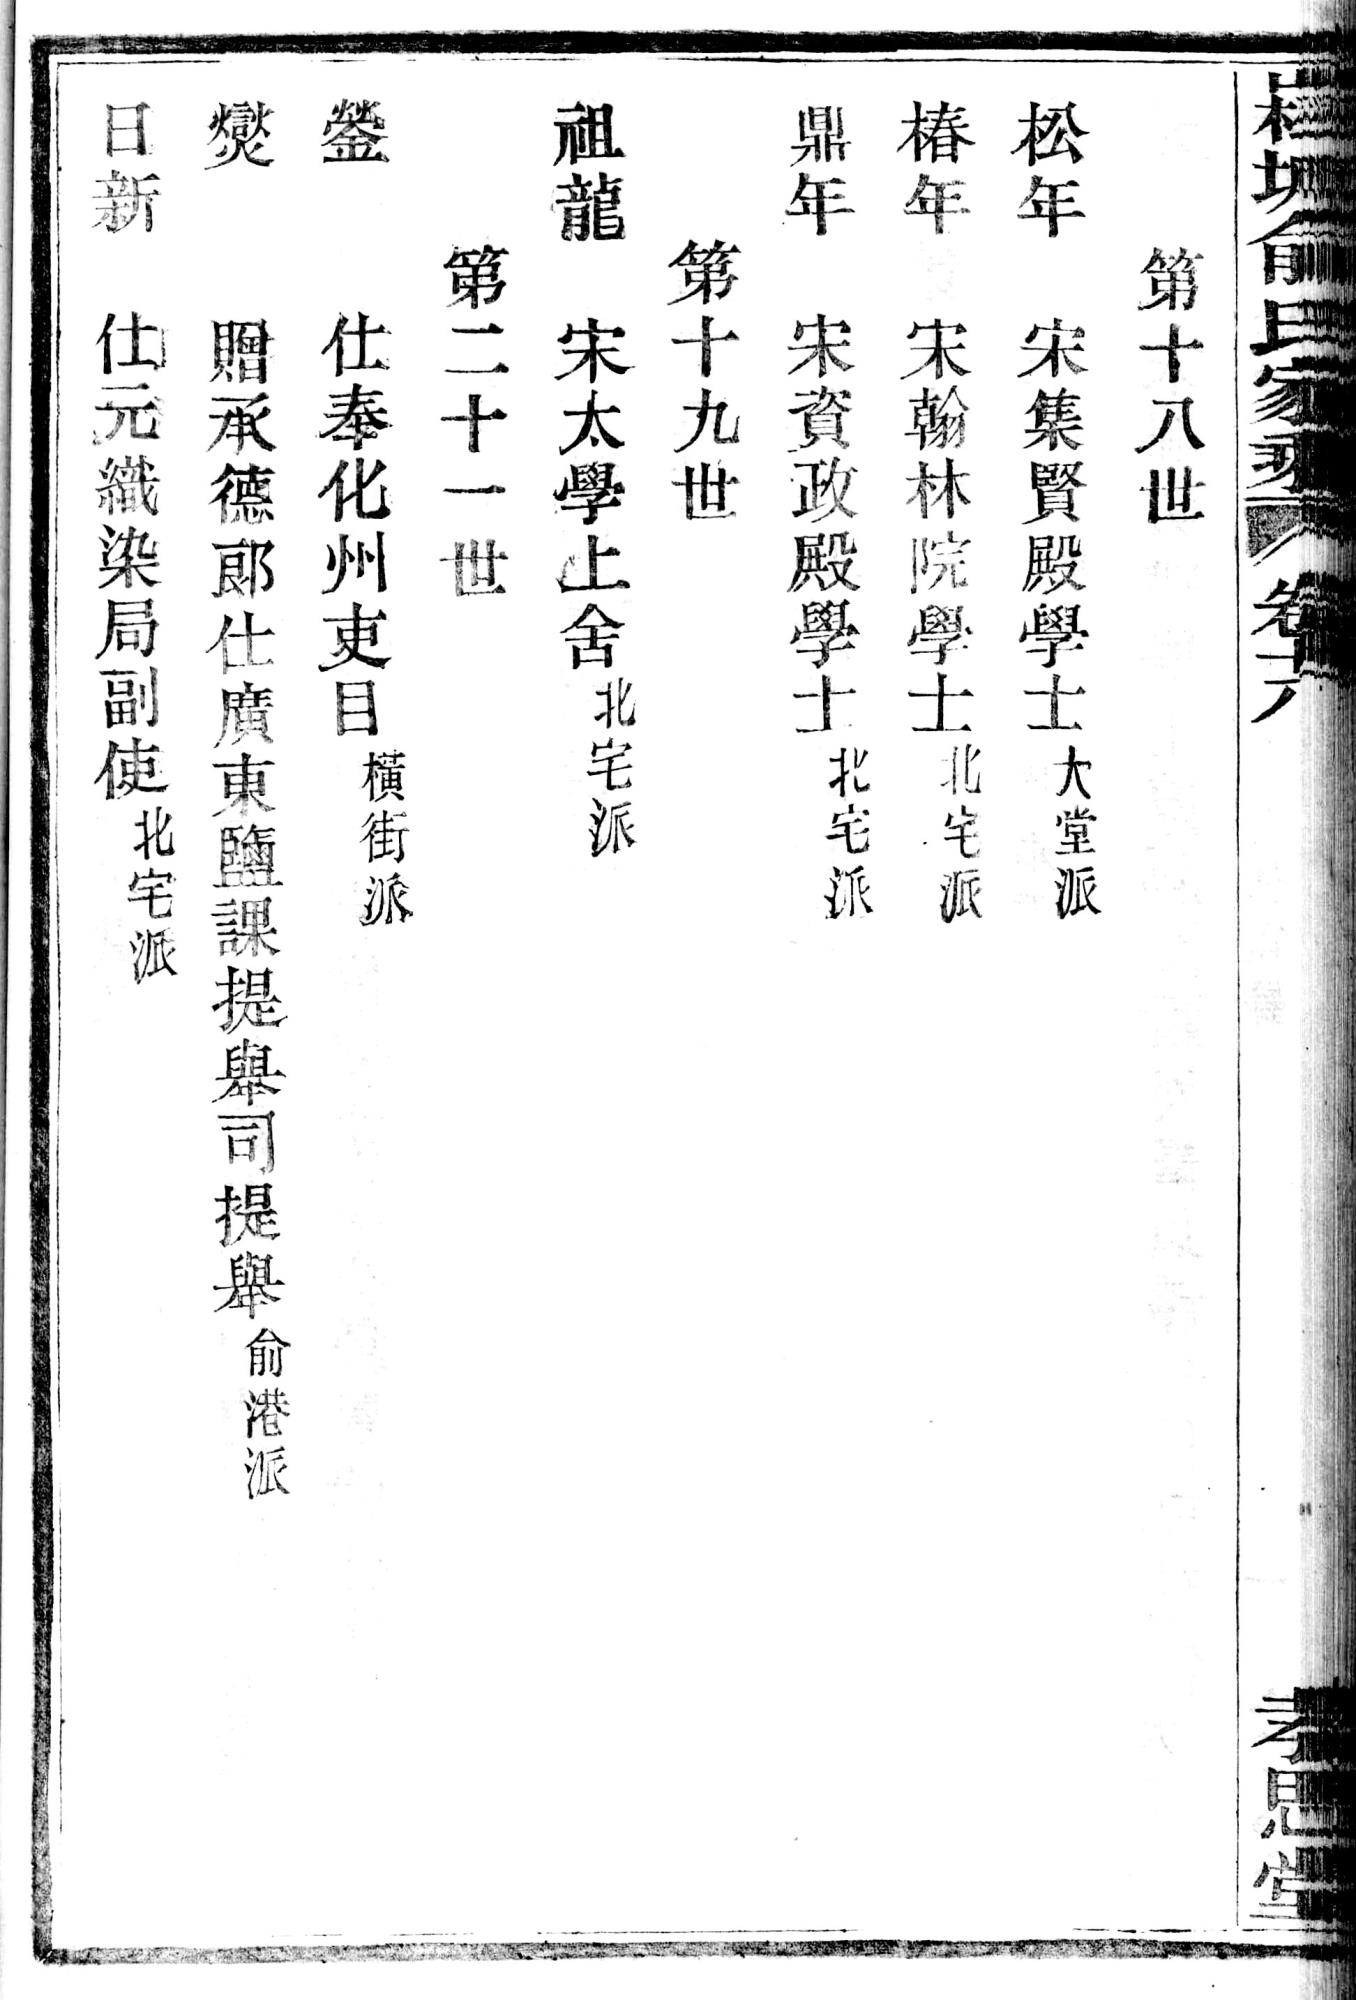 第十八世
松年 宋集賢殿學士大堂派
椿年 宋翰林院學士北宅派
鼎年 宋資政殿學士北宅派
第十九世
祖龍 宋太學上舍北宅派
第二十一世
鎣 仕奉化州吏目橫街派
爕 贈承德郎仕廣東鹽課提舉司提舉俞港派
日新 仕元織染局副使北宅派
塘俞氏家乘 卷十六 孝思堂